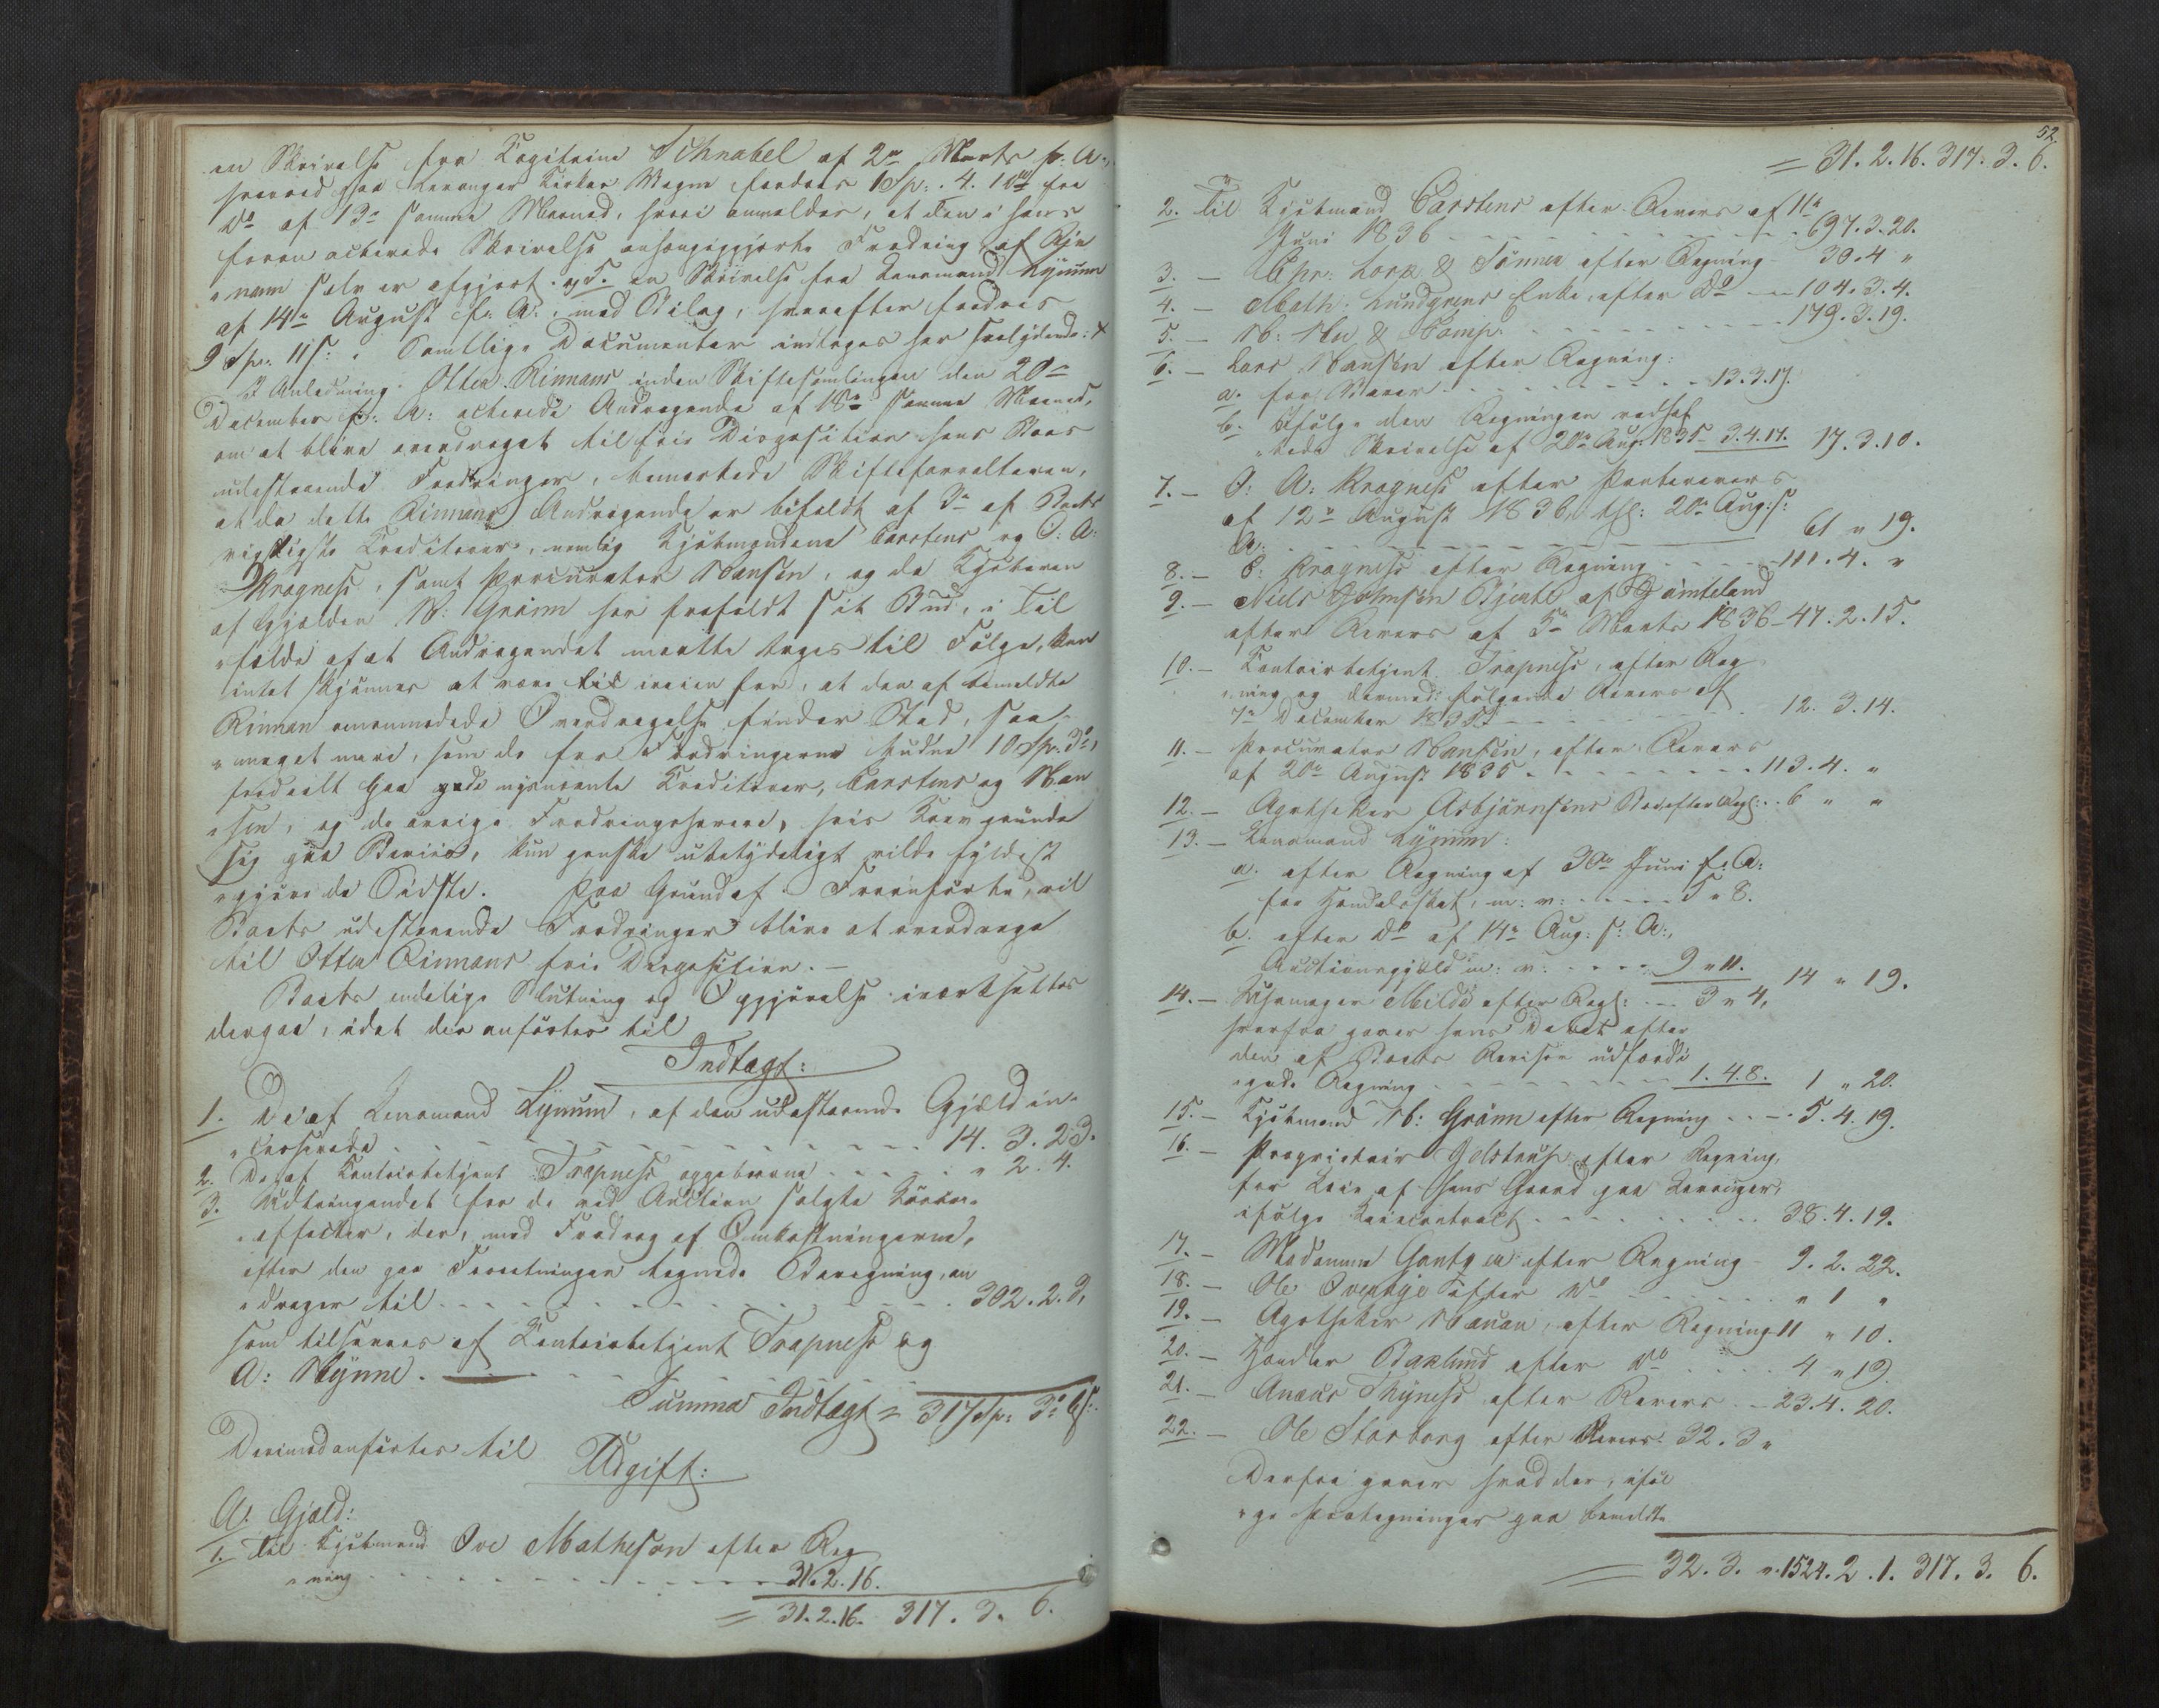 en Skrivelse fra Capitaine Schnabel af 2n Marts f: A:,
hvorved paa Levanger Kirkes Vegne fordres 1 Sp: 4. 10 fra
Do af 13de samme Maaned, hvori anmeldes, at den i hans
foran acterede Skrivelse anhængiggjorte Fordring af Rin
"nan selv er afgjort. og 5. en Skrivelse fra Lensmand Lynum
af 14de August f: A:, med Bilag, hvorefter fordres
9 Sp: 11 s:. Samtlige Documenter indtages her saalydende: x
I Anledning Otter Rinnans inden Skiftesamlingen den 20de
December f: A: acterede Andragende af 18de samme Maaned,
om at blive overdraget til frie Disposition hans Boes
udestaaende Fordringer, bemærkede Skifteforvalteren,
at da dette Rinnans Andragende er bifaldt af 3de af Boets
vigtigste Creditorer, nemlig Kjøbmændene Carstens og O: A:
Kragness, samt Procurator Hansen, og da Kjøberen
af Gjælden N: Grønn har frafaldt sit Bud, i Til
"fælde af at Andragendet maatte tages til Følge, kan
intet skjønnes at være til iveien for, at den af bemeldte
Rinnan omanmodede Overdragelse finder Sted, saa
"meget mere, som de for Fordringerne budne 10 Sp. 3 ,
fordeelt paa gode Creditorer, Carstens og Han
"sen, og de øvrige Fordringshavere, hvis Krav grunde
sig paa Beviis, kun ganske ubetydeligt vilde fyldest
"gjøre de Sidste. Paa Grund af Foranførte, vil
Boets udestaaende Fordringer blive at overdrage
til Otter Rinnans frie Disposition. –
Boets endelige Slutning og Opgjørelse iværksættes
derpaa, idet der anførtes til
Indtægt:
1. De af Lensmand Lynum, af den udestaaende Gjæld in-
"casserede . . . 14. 3. 23.
2. De af Contoirbetjent Trapness oppebaarne . . . " 2. 4.
3. Udbringendet for de ved Auction solgte
"effecter, der, med Fradrag af Omkostningerne,
efter den paa Forretningen tegnede Beregning, an
"drager til . . . 302. 2. 3,
som tilsvares af Contoirbetjent Trapness og
A: Hynne. . . .
Summa Indtægt = 317 Sp: 3 6 s:
Derimod anførtes til
Udgift:
A. Gjæld:
1. Til Kjøbmand Ove Matheson efter Reg
"ning . . . 31. 2. 16.
= 31. 2. 16. 317. 3. 6.
52.
= 31. 2. 16. 317. 3. 6.
2. Til Kjøbmand Carstens efter Revers af 11te
Juni 1836 . . . 697. 3. 20.
3. – Chr: Lorck & Sønner efter Regning 30. 4 "
4. – Math: Lundgrens Enke, efter Do . . . 104. 3. 4.
5. – H: & Comp: . . . 179. 3. 19.
6. – Lars Hansen efter Regning:
a. for Varer . . . 13. 3. 17.
b. ifølge den Regningen vedhef
"tede Skrivelse af 20de Aug: 1835 3. 4. 17. 17. 3. 10.
7. – O: A: Kragness efter Pantereverss
af 12te August 1836, thgl: 20de Aug: s:
A: . . . 61 " 19.
8. – C: Kragness efter Regning . . . 111. 4. "
9. – Niels Johnsen Bjerkt af Jämteland
efter Revers af 5te Marts 1836 – 47. 2. 15.
10. – Contoirbetjent Trapness, efter Reg
"ning og dermed følgende Revers af
7de December 1835 . . . 12. 3. 14.
11. – Procurator Hansen, efter Revers
af 20de August 1835 . . . 113. 4. "
12. – Apotheker Asbjørnsens Bo efter Regl: . . 6 " "
13. – Lensmand Lynum:
a. efter Regning af 30de Juni f: A:
for Handelsskat, m: v: . . . 5 " 8.
b. efter Do af 14de Aug: s: A:,
Auctionsgjæld m: v: . . . 9 " 11. 14 " 19.
14. – Uhrmager Milde efter Regl: . . . 3 " 4,
hvorfra gaaer hans Debet efter
den af Boets Revisor udfærdi
"gede Regning . . . 1. 4. 8. 1 " 20.
15. – Kjøbmand N: Grønn efter Regning . . . 5. 4. 19.
16. – Proprietair Jelstrup efter Regning,
for Leie af hans Gaard paa Levanger,
ifølge Leiecontract . . . 38. 4. 19.
17. – Madamme efter Regning 9. 2. 22.
18. – Ole efter Do . . . " 1 "
19. – Apotheker efter Regning 11 " 10.
20. – Handler Baklund efter Do . . . 4 " 19.
21. – Anæus Thyness efter Revers . . 23. 4. 20.
22. – Ole Storborg efter Revers 32. 3 "
Derfra gaaer hvad der, iføl
"ge Paategninger paa bemeldte
= 32. 3. " 1524. 2. 1. 317. 3. 6.